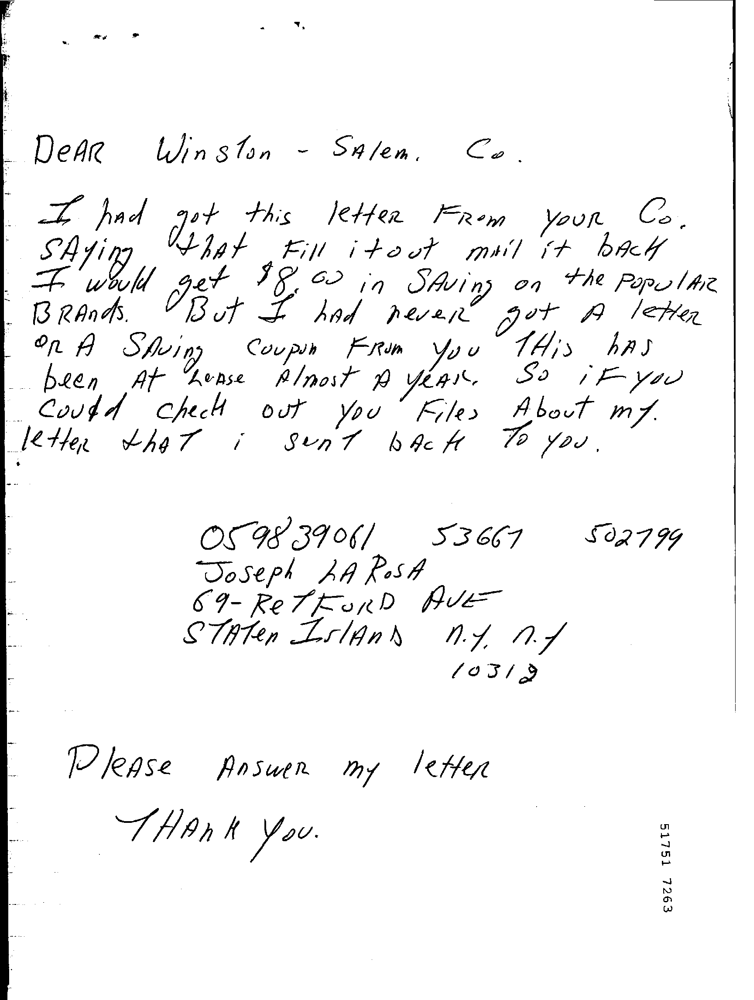 Dear Winston - Salem. Co.
I had got this letter From your Co.
Saying that Fill it out mail it back
I would get $8.00 in Saving on the Popular
Brands. But I had never got A letter
or A Saving Coupon From you THis has
been At lease Almost A year. So iF you
Could check out you Files About my.
letter that i sent back To you.
059839061 53667 502799
Joseph LA RosA
69-RetFord AvE
Staten Island n.y. n.y
10312
Please Answer my letter
THAnk You.
51751 7263